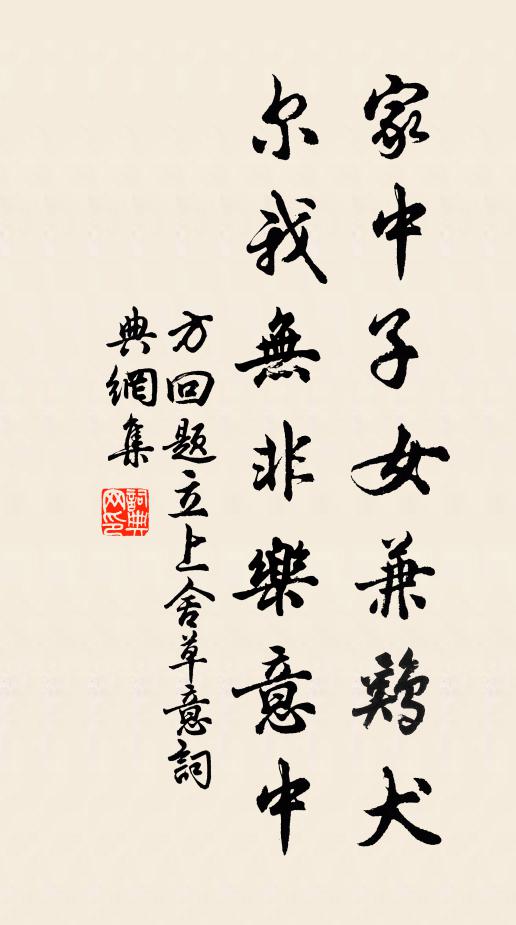 家中子女兼鷄犬
尔我無非樂意中
方回题立上舍草意詞
典網集
詞典网印